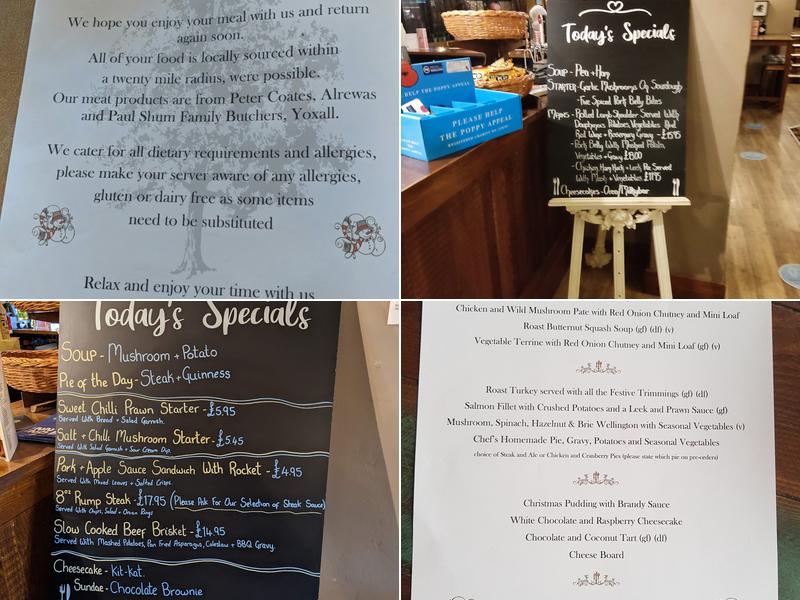 We hope you enjoy your meal with us and return
again soon.
All of your food is locally sourced within
a twenty mile radius, were possible.
Our meat products are from Peter Coates, Alrewas
and Paul Shum Family Butchers, Yoxall.
We cater for all dietary requirements and allergies,
please make your server aware of any allergies,
gluten or dairy free as some items
need to be substituted
Relax and enjoy your time with us
Today's Specials
Soup - Pea + Ham
Starter - Garlic Mushrooms On Sourdough
Five Special Pork Belly Bites
Mains - Rolled Lamb Shoulder Served With
Dauphinoise Potatoes, Vegetables And
Red Wine + Rosemary Gravy - £15.95
- Pork Belly With Mashed Potato,
Vegetables + Gravy £13.00
- Chicken, Ham Hock + Leek Pie Served
With Mash + Vegetables £11.95
Cheesecakes - Oreo/Milkybar
PLEASE HELP
THE POPPY APPEAL
Today's Specials
Soup - Mushroom + Potato
Pie of the Day - Steak + Guinness
Sweet Chilli Prawn Starter - £5.95
Served With Bread + Salad Garnish.
Salt + Chilli Mushroom Starter - £5.45
Served With Salad Garnish + Sour Cream Dip.
Pork + Apple Sauce Sandwich With Rocket - £4.95
Served With Mixed Leaves + Salted Crisps.
8oz Rump Steak - £17.95 (Please Ask For Our Selection of Steak Sauce)
Served With Chips, Salad + Onion Rings
Slow Cooked Beef Brisket - £14.95
Served With Mashed Potatoes, Pan Fried Asparagus, Coleslaw + BBQ Gravy.
Cheesecake - Kit-kat.
Sundae - Chocolate Brownie
Chicken and Wild Mushroom Pate with Red Onion Chutney and Mini Loaf
Roast Butternut Squash Soup (gf) (df) (v)
Vegetable Terrine with Red Onion Chutney and Mini Loaf (gf) (v)
Roast Turkey served with all the Festive Trimmings (gf) (df)
Salmon Fillet with Crushed Potatoes and a Leek and Prawn Sauce (gf)
Mushroom, Spinach, Hazelnut & Brie Wellington with Seasonal Vegetables (v)
Chef's Homemade Pie, Gravy, Potatoes and Seasonal Vegetables
choice of Steak and Ale or Chicken and Cranberry Pies (please state which pie on pre-orders)
Christmas Pudding with Brandy Sauce
White Chocolate and Raspberry Cheesecake
Chocolate and Coconut Tart (gf) (df)
Cheese Board